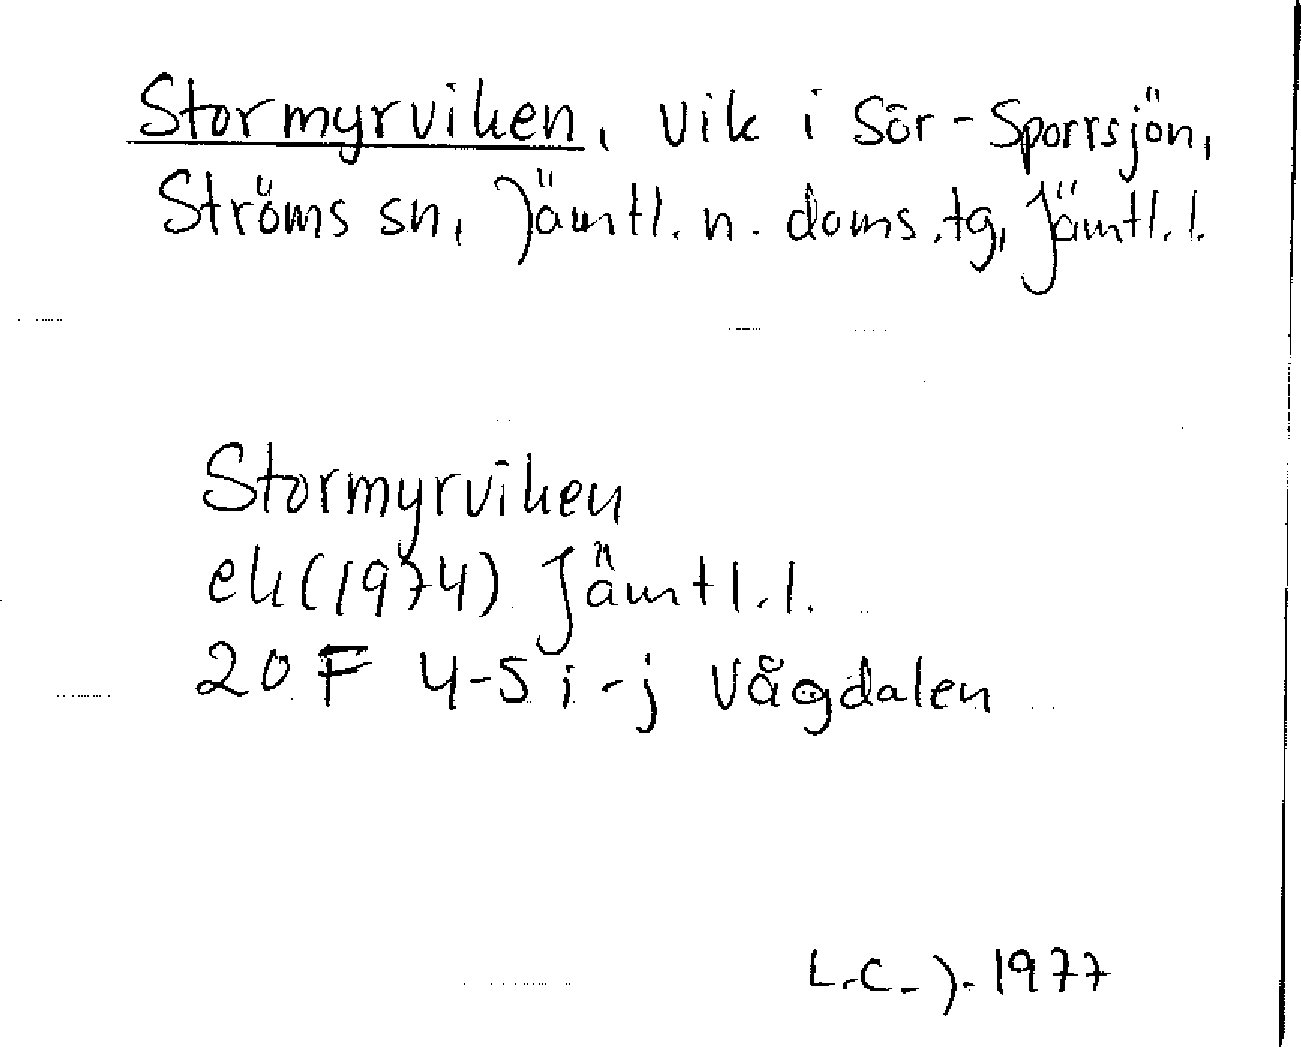 Stormyrviken, vik i Sör-Sporrsjön,
Ströms sn, Jämtl. n. doms.tg, Jämtl.l.
Stormyrviken
ek(1974) Jämtl.l.
20 F 4-5 i-j Vågdalen
L.C.J. 1977